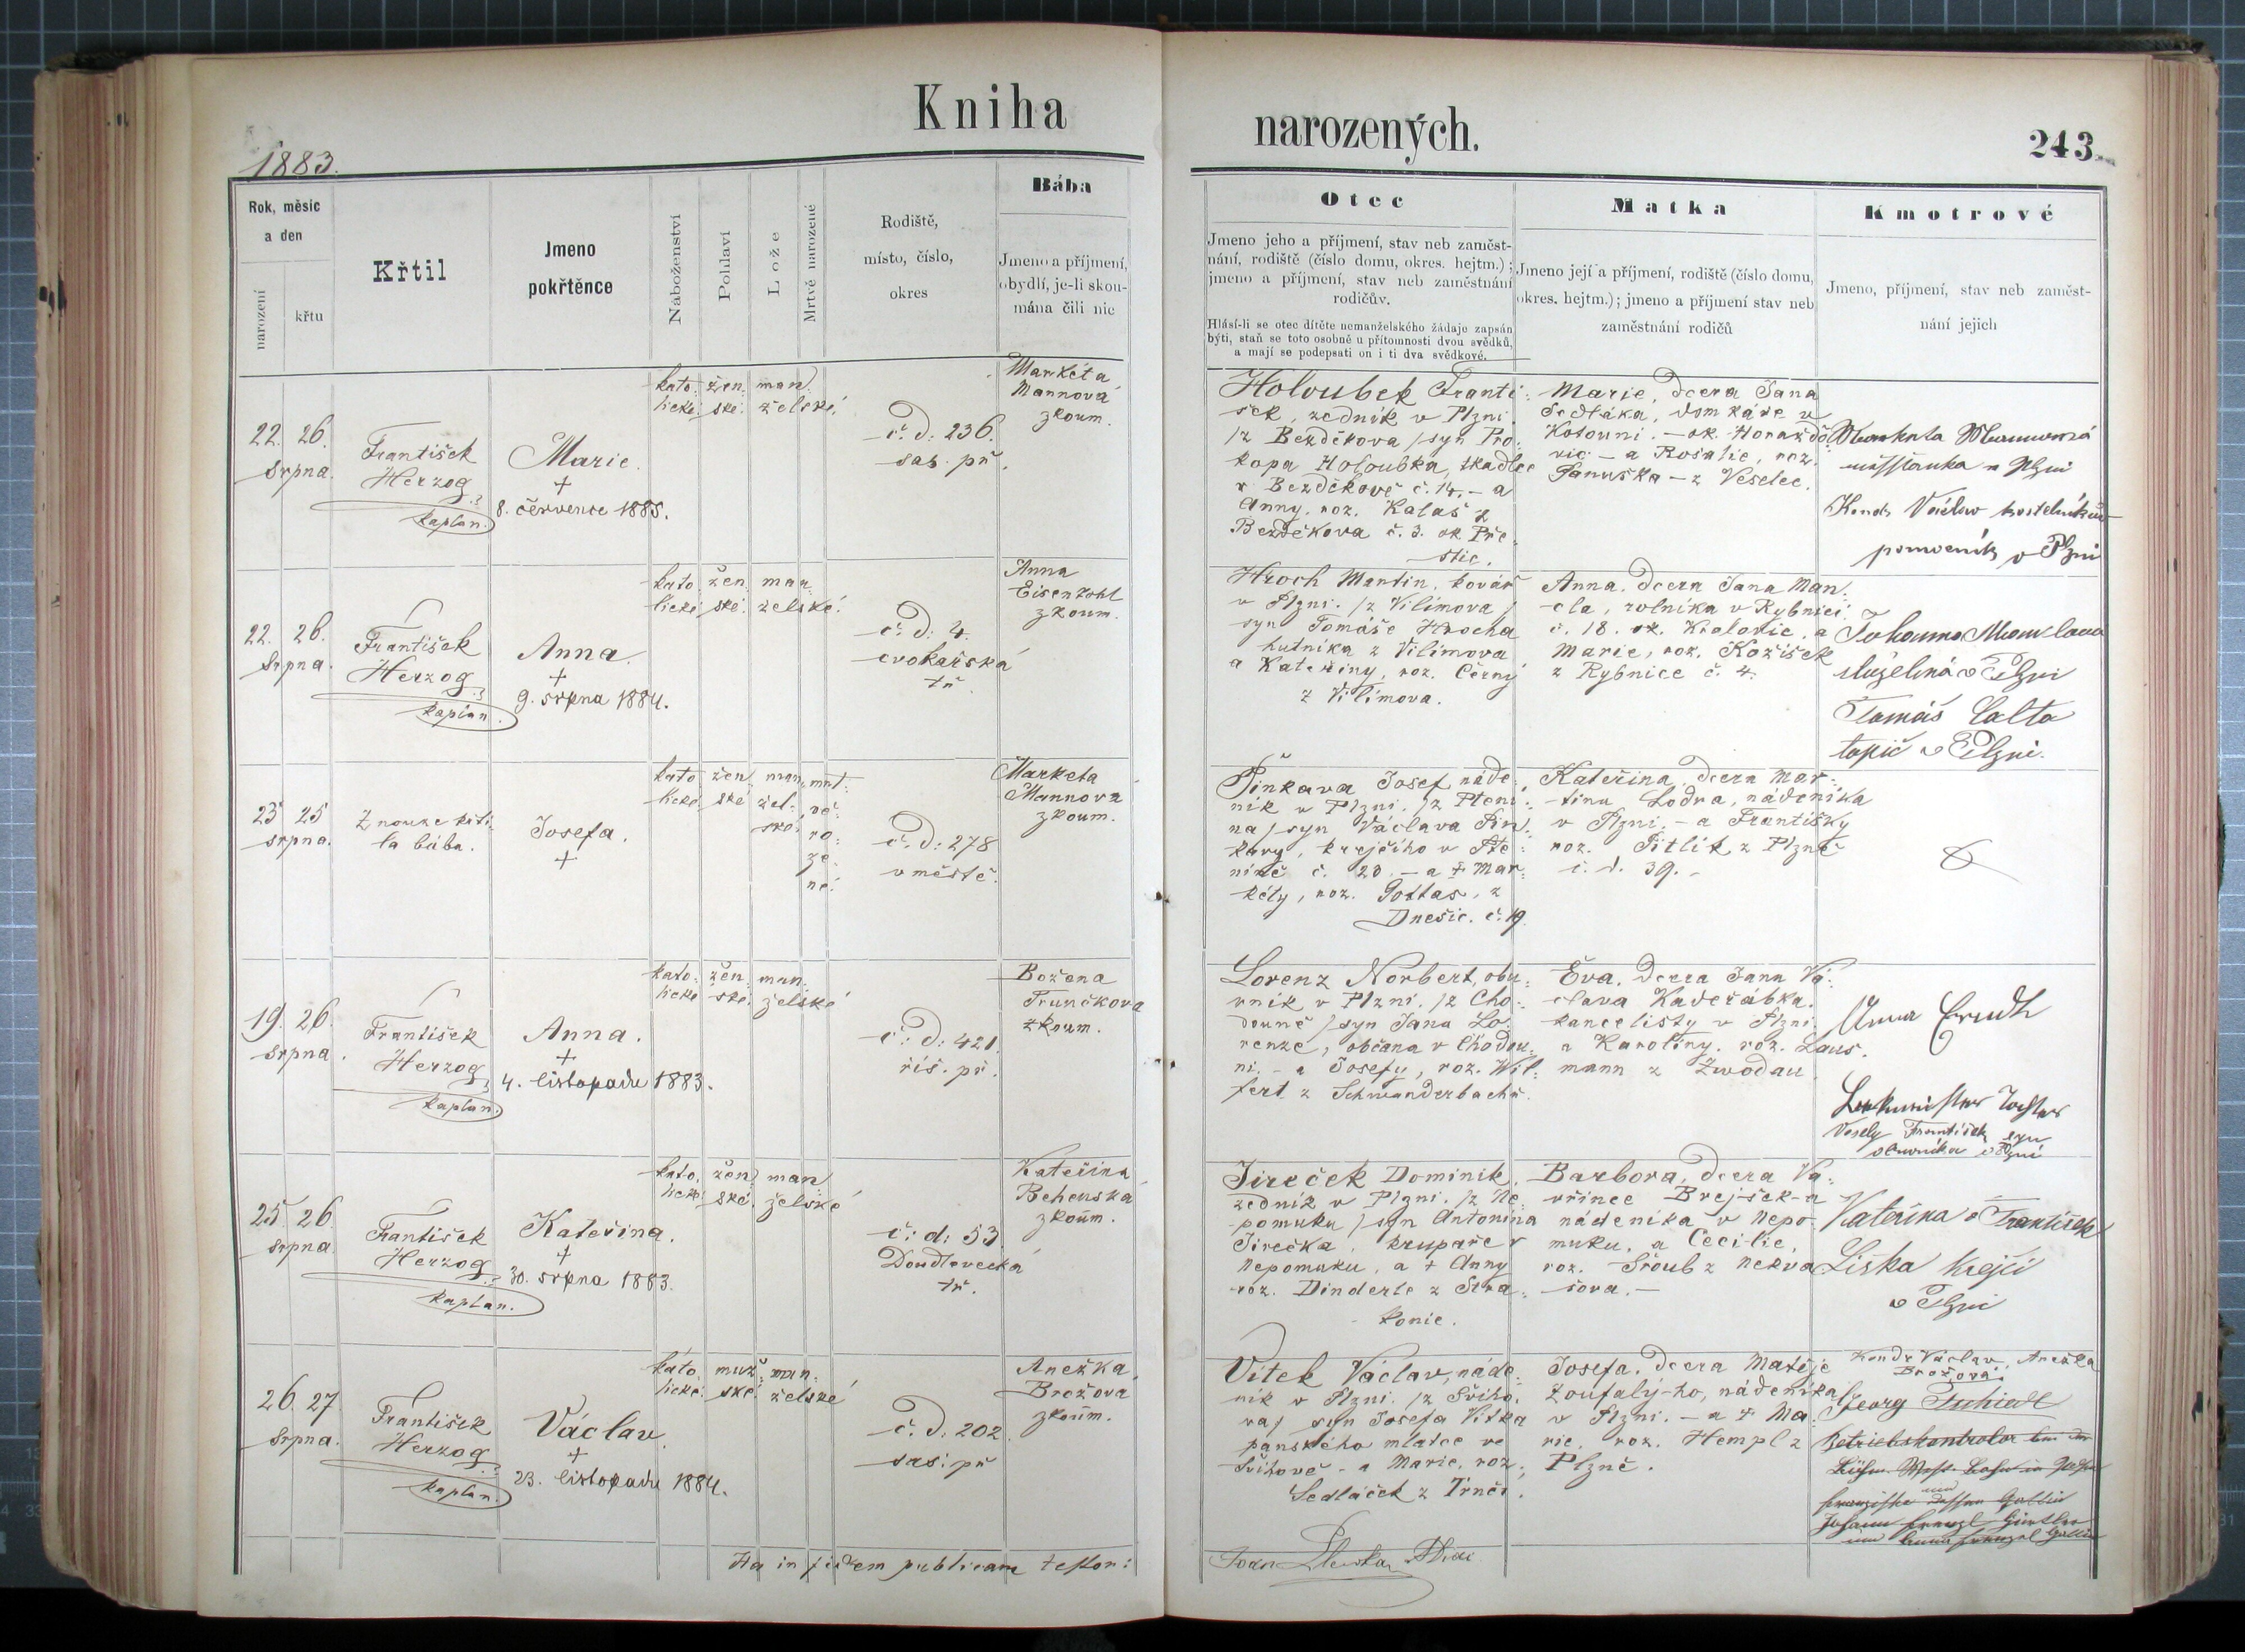 Kniha
narozených.
243.
1883.
Rok, měsíc
a den
narození
křtu
Křtil
Jmeno
pokřtěnce
Náboženství
Pohlaví
Lože
Mrtvě narozené
Rodiště,
místo, číslo,
okres
Bába
Jmeno a příjmení,
obydlí, je-li skou-
mána čili nic
Otec
Jmeno jeho a příjmení, stav neb zaměst-
nání, rodiště (číslo domu, okres. hejtm.);
jmeno a příjmení, stav neb zaměstnání
rodičův.
Hlásí-li se otec dítěte nemanželského žádaje zapsán
býti, staň se toto osobně u přítomnosti dvou svědků,
a mají se podepsati on i ti dva svědkové.
Matka
Jmeno její a příjmení, rodiště (číslo domu,
okres. hejtm.); jmeno a příjmení stav neb
zaměstnání rodičů
Kmotrové
Jmeno, příjmení, stav neb zaměst-
nání jejich
22. 26.
srpna.
František
Herzog
kaplan.
Marie.
+
8. července 1885.
kato:
lické
žen:
ské.
man:
želské.
č. d: 236.
sas. př.
Markéta
Mannová
zkoum.
Holoubek Franti:
šek, zedník v Plzni.
/z Bezděkova / syn Pro:
kopa Holoubka, tkadlce
v Bezděkově č. 14. – a
Anny, roz. Kalaš z
Bezděkova č. 3. ok Pře:
štic.
Marie, dcera Jana
Sedláka, domkáře v
Kotouni. – ok. Horažďo
vic – a Rosalie, roz.
Januška – z Veselec.
měšťanka v Plzni
Václav kostelnický
pomocník v Plzni
22. 26.
srpna.
František
Herzog
kaplan.
Anna.
+
9. srpna 1884.
kato:
lické
žen:
ské.
man:
želské.
č. d: 4.
cvokařská
tř.
Anna
Eisenkohl
zkoum.
Hroch Martin, kovář
v Plzni. /z Vilímova /
syn Tomáše Hrocha
hutníka z Vilímova
a Kateřiny, roz. Černý
z Vilímova.
Anna, dcera Jana Man:
rolníka v Rybnici
č. 18. ok. Kralovic. a
Marie, roz. Kožíšek
z Rybnice č. 4.
v Plzni
Tomáš Calta
topič v Plzni.
23 25
srpna.
Z nouze křti
la bába.
Josefa.
+
kato
lické
žen
ské
man:
žel:
ské.
mrt:
vě:
ro:
ze:
né.
č. d: 278
v městě.
Marketa
Mannova
zkoum.
Pinkava Josef náde:
ník v Plzni. /z Pteni:
na / syn Václava Pin:
kavy, krejčího v Pte:
níně č. 20. – a + Mar:
kéty, roz. Gottas, z
Dnešic. č. 19
Kateřina, dcera Mar:
tina Lodra, nádeníka
v Plzni. – a Františky
roz. Pitlík z Plzně
č. d. 39. –
19. 26.
srpna.
František
Herzog
kaplan.
Anna.
+
4. listopadu 1883.
kato:
lické
žen
ské.
man:
želské
č: d: 421.
říš. př.
Božena
Trunčkova
zkoum.
Lorenz Norbert, obu:
vník v Plzni. /z Cho:
douně / syn Jana Lo:
renze, občana v Chodou:
ni. – a Josefy, roz. Wil:
fert z Schwanderbachu.
Eva, dcera Jana Vá:
clava Kadeřábka.
kancelisty v Plzni
a Karolíny, roz. Laus.
mann z Zwodau.
Anna
Veselý František
obuvníka v Plzni
25. 26.
srpna.
František
Herzog
kaplan.
Kateřina.
+
30. srpna 1883.
kato.
lické
žen
ské.
man
želské
č: d: 53
Doudlevecká
tř.
Kateřina
Behenska
zkoum.
Jireček Dominik,
zedník v Plzni. /z Ne:
pomuku / syn Antonína
Jirečka, krupaře v
Nepomuku, a + Anny
roz. Dinderle z Stra:
konic.
Barbora, dcera Va:
vřince Brejšek-a
nádeníka v Nepo
muku, a Cecilie,
roz. Šroub z Nekva
sova. –
Kateřina a František
Liska krejčí
v Plzni
26. 27.
srpna.
František
Herzog
kaplan.
Václav
+
23. listopadu 1884.
kato.
lické.
muž:
ské.
man:
želské
č. d: 202.
sas: př
Anežka
Brožova
zkoum.
Vítek Václav, náde:
ník v Plzni. /z Švího.
va / syn Josefa Vítka
panského mlatce ve
Švihově – a Marie, roz.
Sedláček z Trnčí.
Josefa, dcera Matěje
Zoufalý-ho, nádeníka
v Plzni. – a + Ma:
rie, roz. Hempl z
Plzně.
Václav, Anežka
Brožová.
Georg
Betriebskontrolor
Ita in fidem publicam testor:
Joan